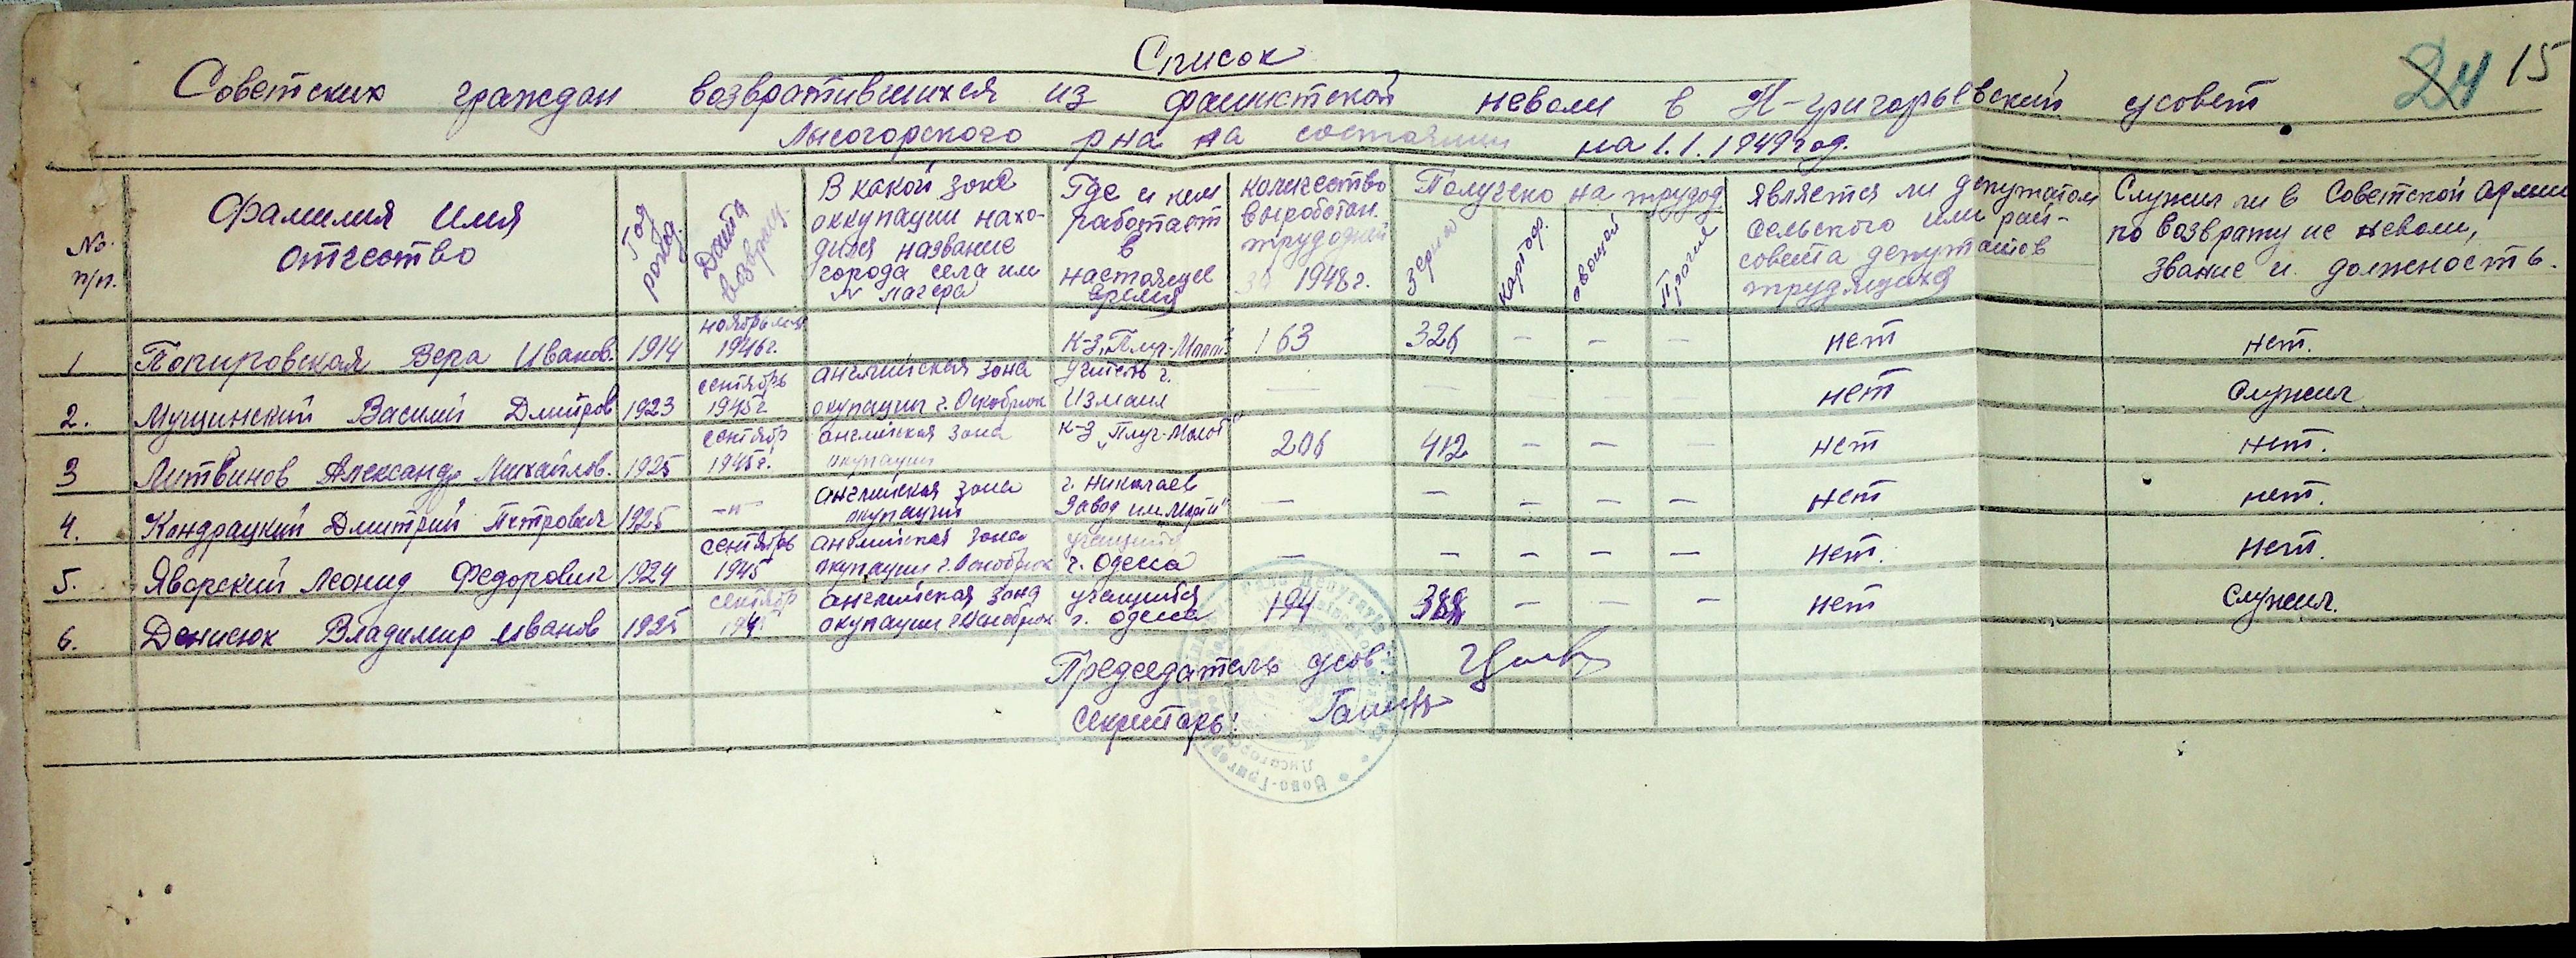 24 15
Список
Советских граждан возвратившихся из фашистской неволи в Н-григорьевский с/совет
Лысогорского р на на состоянии на 1.1.1949 год.
№ п/п.
Фамилия Имя отчество
Год рожд.
Дата возвращ.
В какой зоне оккупации находился название города села или № лагеря
Где и кем работает в настоящее время
количество выработан. трудодней за 1948 г.
Получено на трудод.
зерна
картоф.
овощей
Прочие
является ли депутатом сельского или рай-совета депутатов трудящихся
Служил ли в Советской армии по возврату ис неволи, звание и должность.
1 Вера Иванов. 1914 ноябрь м-ц 1946г. К-з „Плуг-Молот" 163 326 — — — нет нет.
2. Мущинский Василий Дмитров 1923 сентябрь 1945г. английская зона окупации г. Оснобрюк учитель г. Измаил — — нет Служил
3 Литвинов Александр Михайлов. 1925 сентябр 1945г. английская зона окупации к-з „Плуг-Молот" 206 412 — — — нет нет.
4. Кондрацкий Дмитрий Петрович 1925 —"— английская зона окупации г. Николаев Завод им. — — — — — нет нет.
5. Яворский Леонид Федорович 1924 сентябрь 1945 английская зона окупации г. Оснобрюк учащийся г. Одесса — — — — — нет. нет.
6. Денисюк Владимир Иванов 1925 сентябр 194 английская зона окупации г. Оснобрюк учащийся г. Одесса 194 388 — — — нет Служил.
Председатель с/сов:
Секретарь: